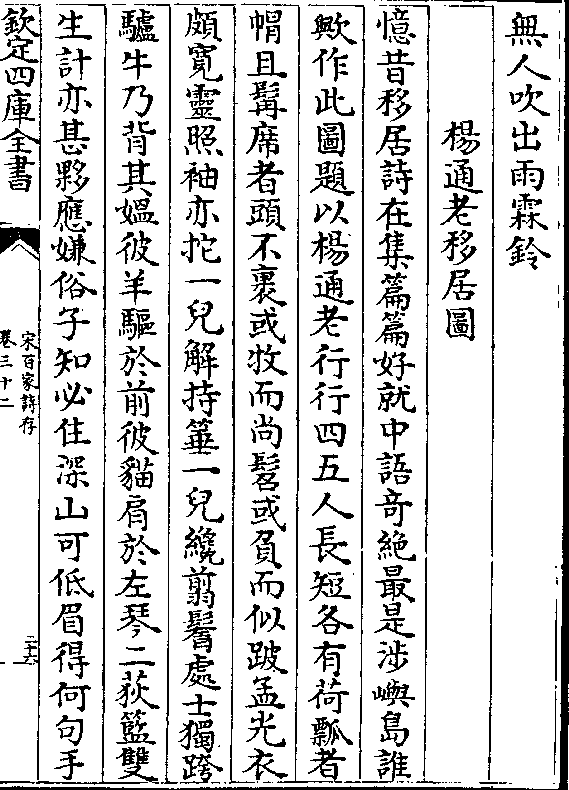 無人吹出雨霖鈴
楊通老移居圖
憶昔移居詩在集篇篇好就中語奇絶最是涉嶼島誰
歟作此圖題以楊通老行行四五人長短各有荷瓢者
帽且髯席者頭不裹或牧而尚髫或負而似跛孟光衣
頗寛靈照袖亦拕一兒解持箠一兒纔翦鬌處士獨跨
驢牛乃背其媪彼羊驅於前彼貓肩於左琴二荻籃雙
生計亦甚夥應嫌俗子知必住深山可低眉得何句手
欽定四庫全書
宋百家詩存
卷三十二
二十六